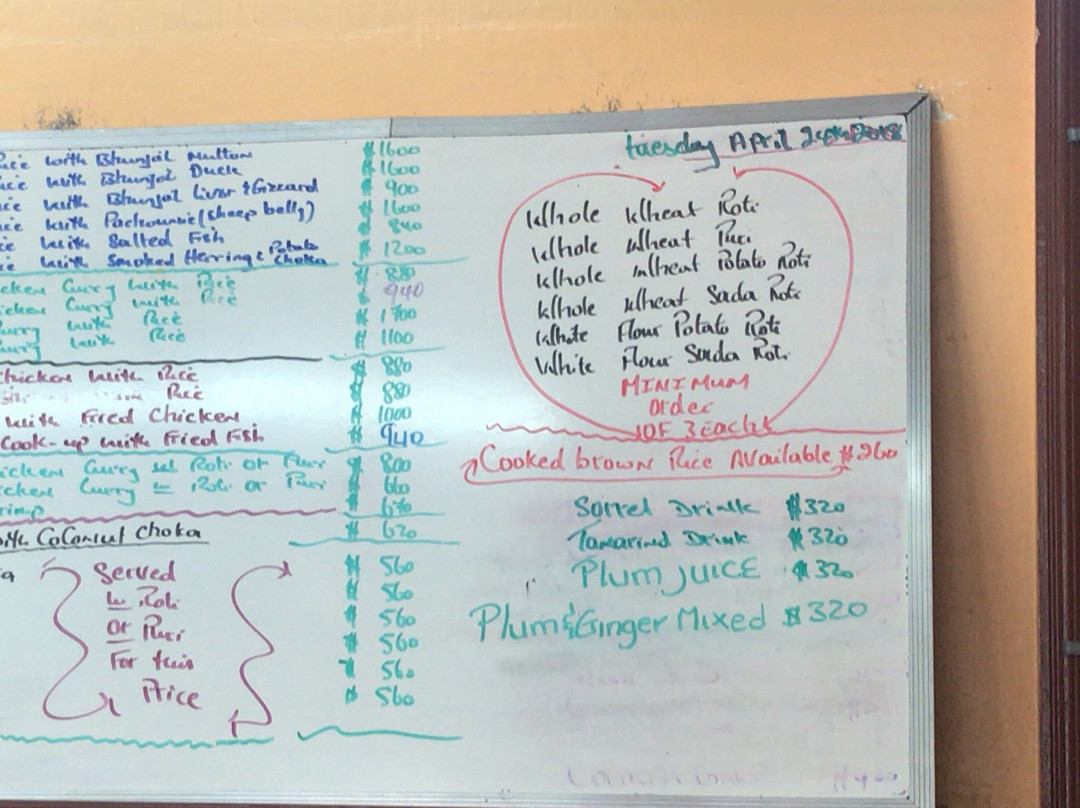 with Bhunjal Mutton $1600
with Bhunjal Duck $1600
with Bhunjal Liver & Gizeard $900
with Pachownie (sheep belly) $1600
with Salted Fish $840
with Smoked Herring & Potato Choka $1200
Curry with Rice $880
Curry with Rice $940
with Rice $1700
with Rice $1100
Chicken with Rice $880
Rice $880
with Fried Chicken $1000
Cook-up with Fried Fish $940
Curry w/ Roti or Puri $800
Curry w Roti or Puri
with Coconut Choka $620
Served
w Roti
or Puri
For this
Price
$560
$560
$560
$560
$560
$560
Tuesday April
Whole Wheat Roti
Whole Wheat Puri
Whole Wheat Potato Roti
Whole Wheat Sada Roti
White Flour Potato Roti
White Flour Sada Roti
MINIMUM
order
OF 3 each
Cooked brown Rice Available $260
Sorrel Drink $320
Tamarind Drink $320
Plum juice $320
Plum & Ginger Mixed $320